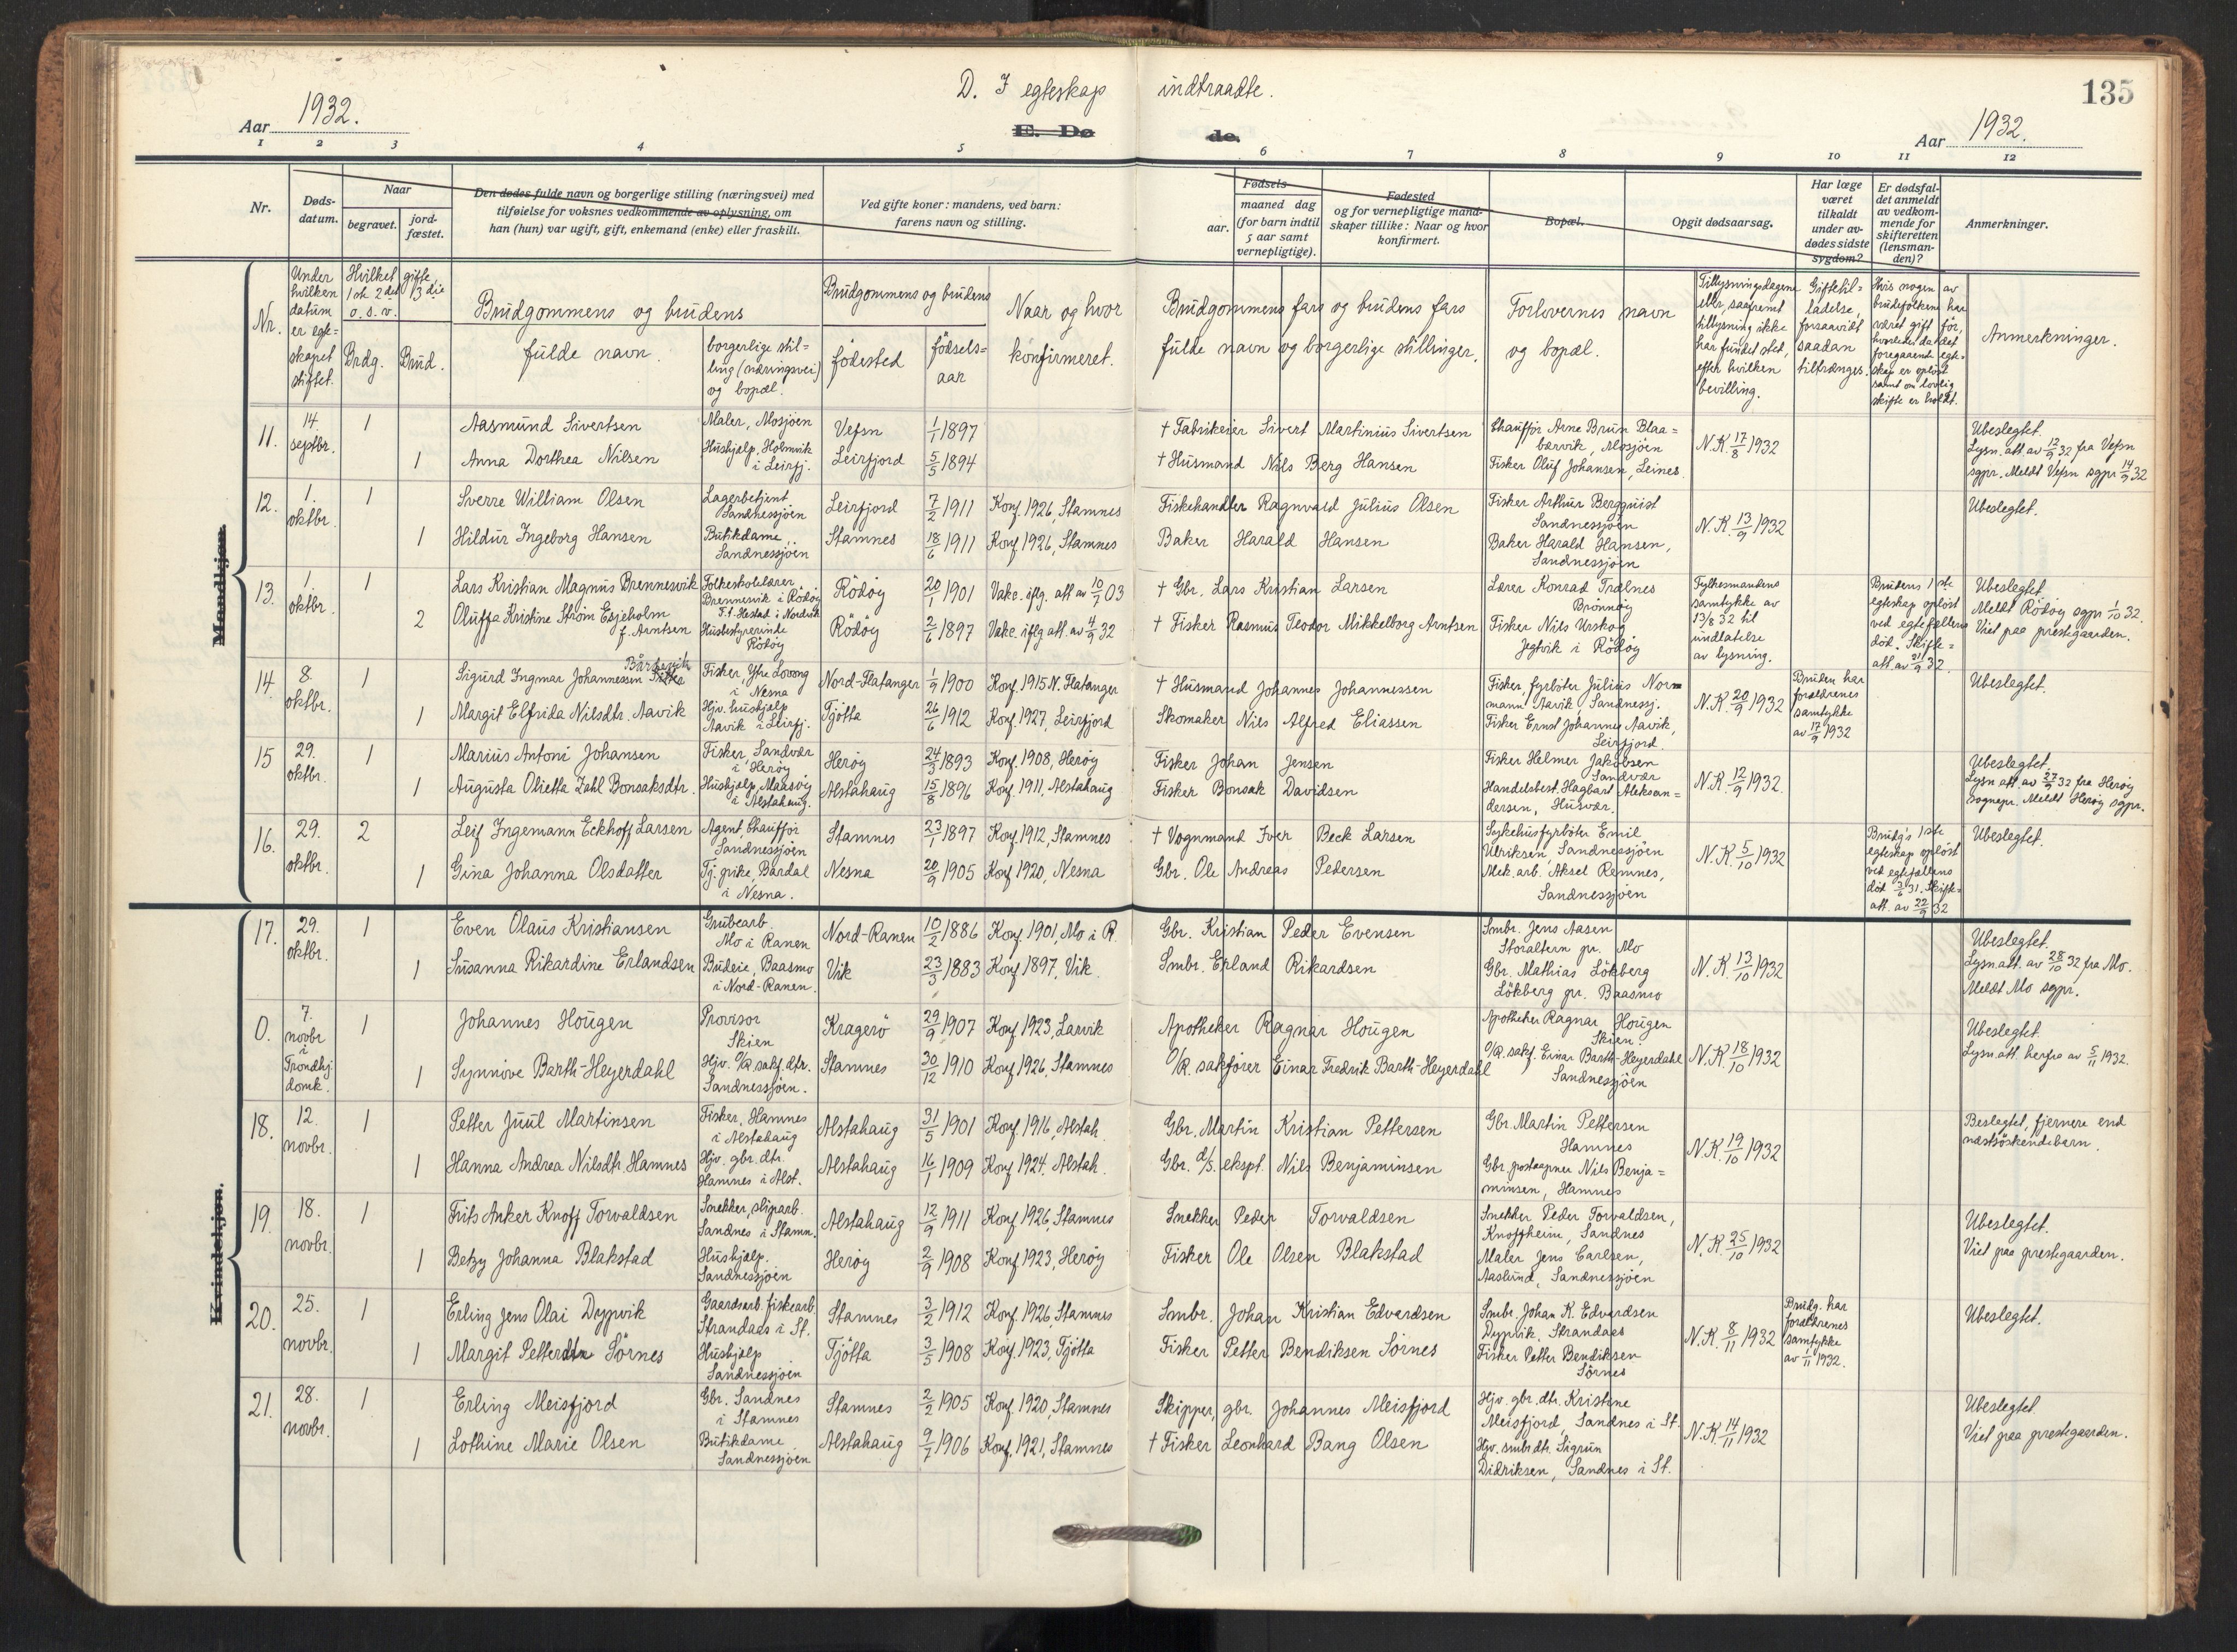 135
D. I egteskap indtraadte.
Aar 1932.
E. Dø de.
Aar 1932.
1 2 3 4 5 6 7 8 9 10 11 12
Nr.
Døds-
datum.
Naar
begravet.
jord-
fæstet.
Den dødes fulde navn og borgerlige stilling (næringsvei) med
tilføielse for voksnes vedkommende av oplysning, om
han (hun) var ugift, gift, enkemand (enke) eller fraskilt.
Ved gifte koner: mandens, ved barn:
farens navn og stilling.
Fødsels-
aar.
maaned dag
(for barn indtil
5 aar samt
vernepligtige).
Fødested
og for vernepligtige mand-
skaper tillike: Naar og hvor
konfirmert.
Bopæl.
Opgit dødsaarsag.
Har læge
været
tilkaldt
under av-
dødes sidste
sygdom?
Er dødsfal-
det anmeldt
av vedkom-
mende for
skifteretten
(lensman-
den)?
Anmerkninger.
Nr.
Under
hvilken
datum
er egte-
skapet
stiftet.
Hvilket gifte,
1ste 2det 3die
o. s. v.
Brdg. Brud.
Brudgommens og brudens
fulde navn.
borgerlige stil-
ling (næringsvei)
og bopæl.
Brudgommens og brudens
fødested
fødsels-
aar
Naar og hvor
konfirmeret.
Brudgommens fars og brudens fars
fulde navn og borgerlige stillinger.
Forlovernes navn
og bopæl.
Tillysningsdagene
eller, saafremt
tillysning ikke
har fundet sted,
efter hvilken
bevilling.
Giftetil-
ladelse,
forsaavidt
saadan
tiltrænges.
Hvis nogen av
brudefolkene har
været gift før,
hvorledes da det
foregaaende egte-
skap er opløst
samt om lovlig
skifte er holdt.
Anmerkninger.
Mandkjøn.
11. 14. septbr. 1 Aasmund Sivertsen Maler, Mosjøen Vefsn 1/1 1897 † Fabrikeier Sivert Martinius Sivertsen Chauffør Arne Brun Blaa-
bærvik, Mosjøen N.K. 17/8 1932 Ubeslegtet.
1 Anna Dorthea Nilsen Hushjælp, Holmvik
i Leirfj. Leirfjord 5/5 1894 † Husmand Nils Berg Hansen Fisker Oluf Johansen, Leines. Lysn. att. av 12/9 32 fra Vefsn
sgpr. Meldt Vefsn sgpr 14/9 32
12. 1. oktbr. 1 Sverre William Olsen Lagerbetjent
Sandnessjøen Leirfjord 7/2 1911 Konf. 1926, Stamnes Fiskehandler Ragnvald Julius Olsen Fisker Arthur Bergquist
Sandnessjøen N.K. 13/9 1932 Ubeslegtet.
1 Hildur Ingeborg Hansen Butikdame,
Sandnessjøen Stamnes 18/6 1911 Konf. 1926, Stamnes Baker Harald Hansen Baker Harald Hansen,
Sandnessjøen
13. 1. oktbr. 1 Lars Kristian Magnus Brennesvik Folkeskolelærer
Brennesvik i Rödöy
F. t. Hestad i Nordvik Rödöy 20/1 1901 Vakc. iflg. att av 10/7 03 † Gbr. Lars Kristian Larsen Lærer Konrad Trælnes
Brönnöy Fylkesmandens
samtykke av
13/8 32 til
undlatelse
av lysning. Brudens 1ste
egteskap opløst
ved egtefellens
död. Skifte-
att. av 21/9 32. Ubeslegtet
Meldt Rödöy sgpr 1/10 32.
Viet paa prestegaarden.
2 Oluffa Kristine Ström Esjeholm
f. Arntsen Husbestyrerinde
Rödöy Rödöy 2/6 1897 Vakc. iflg att. av 4/9 32 † Fisker Rasmus Teodor Mikkelborg Arntsen Fisker Nils Urskog
Jegtvik i Rödöy
14. 8. oktbr. 1 Sigurd Ingmar Johannessen Fisker, Ytre Lovong
i Nesna Nord-Flatanger 1/9 1900 Konf. 1915 N. Flatanger † Husmand Johannes Johannessen Fisker, fyrböter Julius Nor-
mann Aavik, Sandnessj. N.K. 20/9 1932 Bruden har
forældrenes
samtykke
av 17/9 1932 Ubeslegtet.
1 Margit Elfrida Nilsdtr. Aavik Hjv. hushjælp
Aavik i Leirfj. Tjötta 26/6 1912 Konf. 1927, Leirfjord Skomaker Nils Alfred Eliassen Fisker Ernst Johannes Aavik,
Leirfjord.
15 29. oktbr. 1 Marius Antoni Johansen Fisker, Sandvær
i Heröy Heröy 24/3 1893 Konf. 1908, Heröy Fisker Johan Jensen Fisker Helmer Jakobsen
Sandvær N.K. 12/9 1932. Ubeslegtet.
1 Augusta Olietta Zahl Bonsaksdtr. Hushjælp, Maasöy
i Alstahaug. Alstahaug 15/8 1896 Konf. 1911, Alstahaug Fisker Bonsak Davidsen Handelsbest. Hagbart Aleksan-
dersen, Husvær. Lysn att. av 27/9 32 fra Heröy
sognepr. Meldt Heröy sgpr.
16. 29. oktbr. 2 Leif Ingemann Eckhoff Larsen Agent, Chauffør
Sandnessjøen Stamnes 23/1 1897 Konf. 1912, Stamnes † Vognmand Iver Beck Larsen Sykehusfyrböter Emil
Ulriksen, Sandnessjöen N.K. 5/10 1932 Brudg's 1ste
egteskap opløst
ved egtefællens
död 3/6 31. Skifte-
att. av 22/9 32 Ubeslegtet.
1 Gina Johanna Olsdatter Tj. pike, Bardal
i Nesna. Nesna 20/9 1905 Konf 1920, Nesna Gbr. Ole Andreas Pedersen Mek. arb. Aksel Remnes,
Sandnessjøen
Kvindekjøn.
17. 29. oktbr. 1 Even Olaus Kristiansen Grubearb.
Mo i Ranen Nord-Ranen 10/2 1886 Konf. 1901, Mo i R. Gbr. Kristian Peder Evensen Smbr. Jens Aasen
Storaltern pr. Mo N.K. 13/10 1932 Ubeslegtet.
1 Susanna Rikardine Erlandsen Budeie, Baasmo
i Nord-Ranen. Vik 23/3 1883 Konf 1897, Vik. Smbr. Erland Rikardsen Gbr. Mathias Lökberg
Lökberg pr. Baasmo Lysn. att. av 28/10 32 fra Mo.
Meldt Mo sgpr.
0. 7. novbr i Trondhj. domk. 1 Johannes Hougen Provisor
Skien Kragerö 29/9 1907 Konf. 1923, Larvik Apotheker Ragnar Hougen Apotheker Ragnar Hougen
Skien. N.K. 18/10 1932 Ubeslegtet.
1 Synnöve Barth-Heyerdahl Hjv. O/R. sakf. dtr.
Sandnessjøen. Stamnes 30/12 1910 Konf 1926, Stamnes O/R. sakfører Einar Fredrik Barth-Heyerdahl O/R. sakf. Einar Barth-Heyerdahl
Sandnessjøen Lysn. att. herfra av 5/11 1932.
18. 12. novbr. 1 Petter Juul Martinsen Fisker, Hamnes
i Alstahaug Alstahaug 31/5 1901 Konf. 1916, Alstah. Gbr. Martin Kristian Pettersen Gbr. Martin Pettersen
Hamnes N.K. 19/10 1932 Beslegtet, fjernere end
næstsöskendebarn.
1 Hanna Andrea Nilsdtr. Hamnes Hjv. gbr. dtr.
Hamnes i Alst. Alstahaug 16/1 1909 Konf 1924. Alstah. Gbr. d/s. ekspt. Nils Benjaminsen Gbr. postaapner Nils Benja-
minsen, Hamnes
19. 18. novbr. 1 Frits Anker Knoff Torvaldsen Snekker, sliparb.
Sandnes i Stamn. Alstahaug 12/9 1911 Konf 1926, Stamnes Snekker Peder Torvaldsen Snekker Peder Torvaldsen,
Knoffheim, Sandnes N.K. 25/10 1932 Ubeslegtet.
1 Betzy Johanna Blakstad Hushjælp.
Sandnessjøen Heröy 2/9 1908 Konf 1923, Heröy Fisker Ole Olsen Blakstad Maler Jens Carlsen,
Aaslund, Sandnessjøen Viet paa prestegaarden.
20. 25. novbr. 1 Erling Jens Olai Dypvik Gaardsarb. fiskearb.
Strandaas i St. Stamnes 3/2 1912 Konf. 1926, Stamnes Smbr. Johan Kristian Edvardsen Smbr. Johan K. Edvardsen
Dypvik, Strandaas N.K. 8/11 1932 Brudg. har
forældrenes
samtykke
av 1/11 1932. Ubeslegtet.
1 Margit Petterdtr Sörnes Hushjælp
Sandnessjøen Tjötta 3/5 1908 Konf. 1923, Tjötta Fisker Petter Bendiksen Sörnes Fisker Petter Bendiksen
Sörnes
21. 28. novbr. 1 Erling Meisfjord Gbr. Sandnes
i Stamnes Stamnes 2/2 1905 Konf. 1920, Stamnes Skipper, gbr. Johannes Meisfjord Hjv. gbr. dtr. Kristine
Meisfjord, Sandnes i St. N.K. 14/11 1932 Ubeslegtet.
1 Lothine Marie Olsen Butikdame
Sandnessjøen Alstahaug 9/7 1906 Konf. 1921, Stamnes † Fisker Leonhard Bang Olsen Hjv. smbrdtr. Sigrun
Didriksen, Sandnes i St. Viet paa prestegaarden.